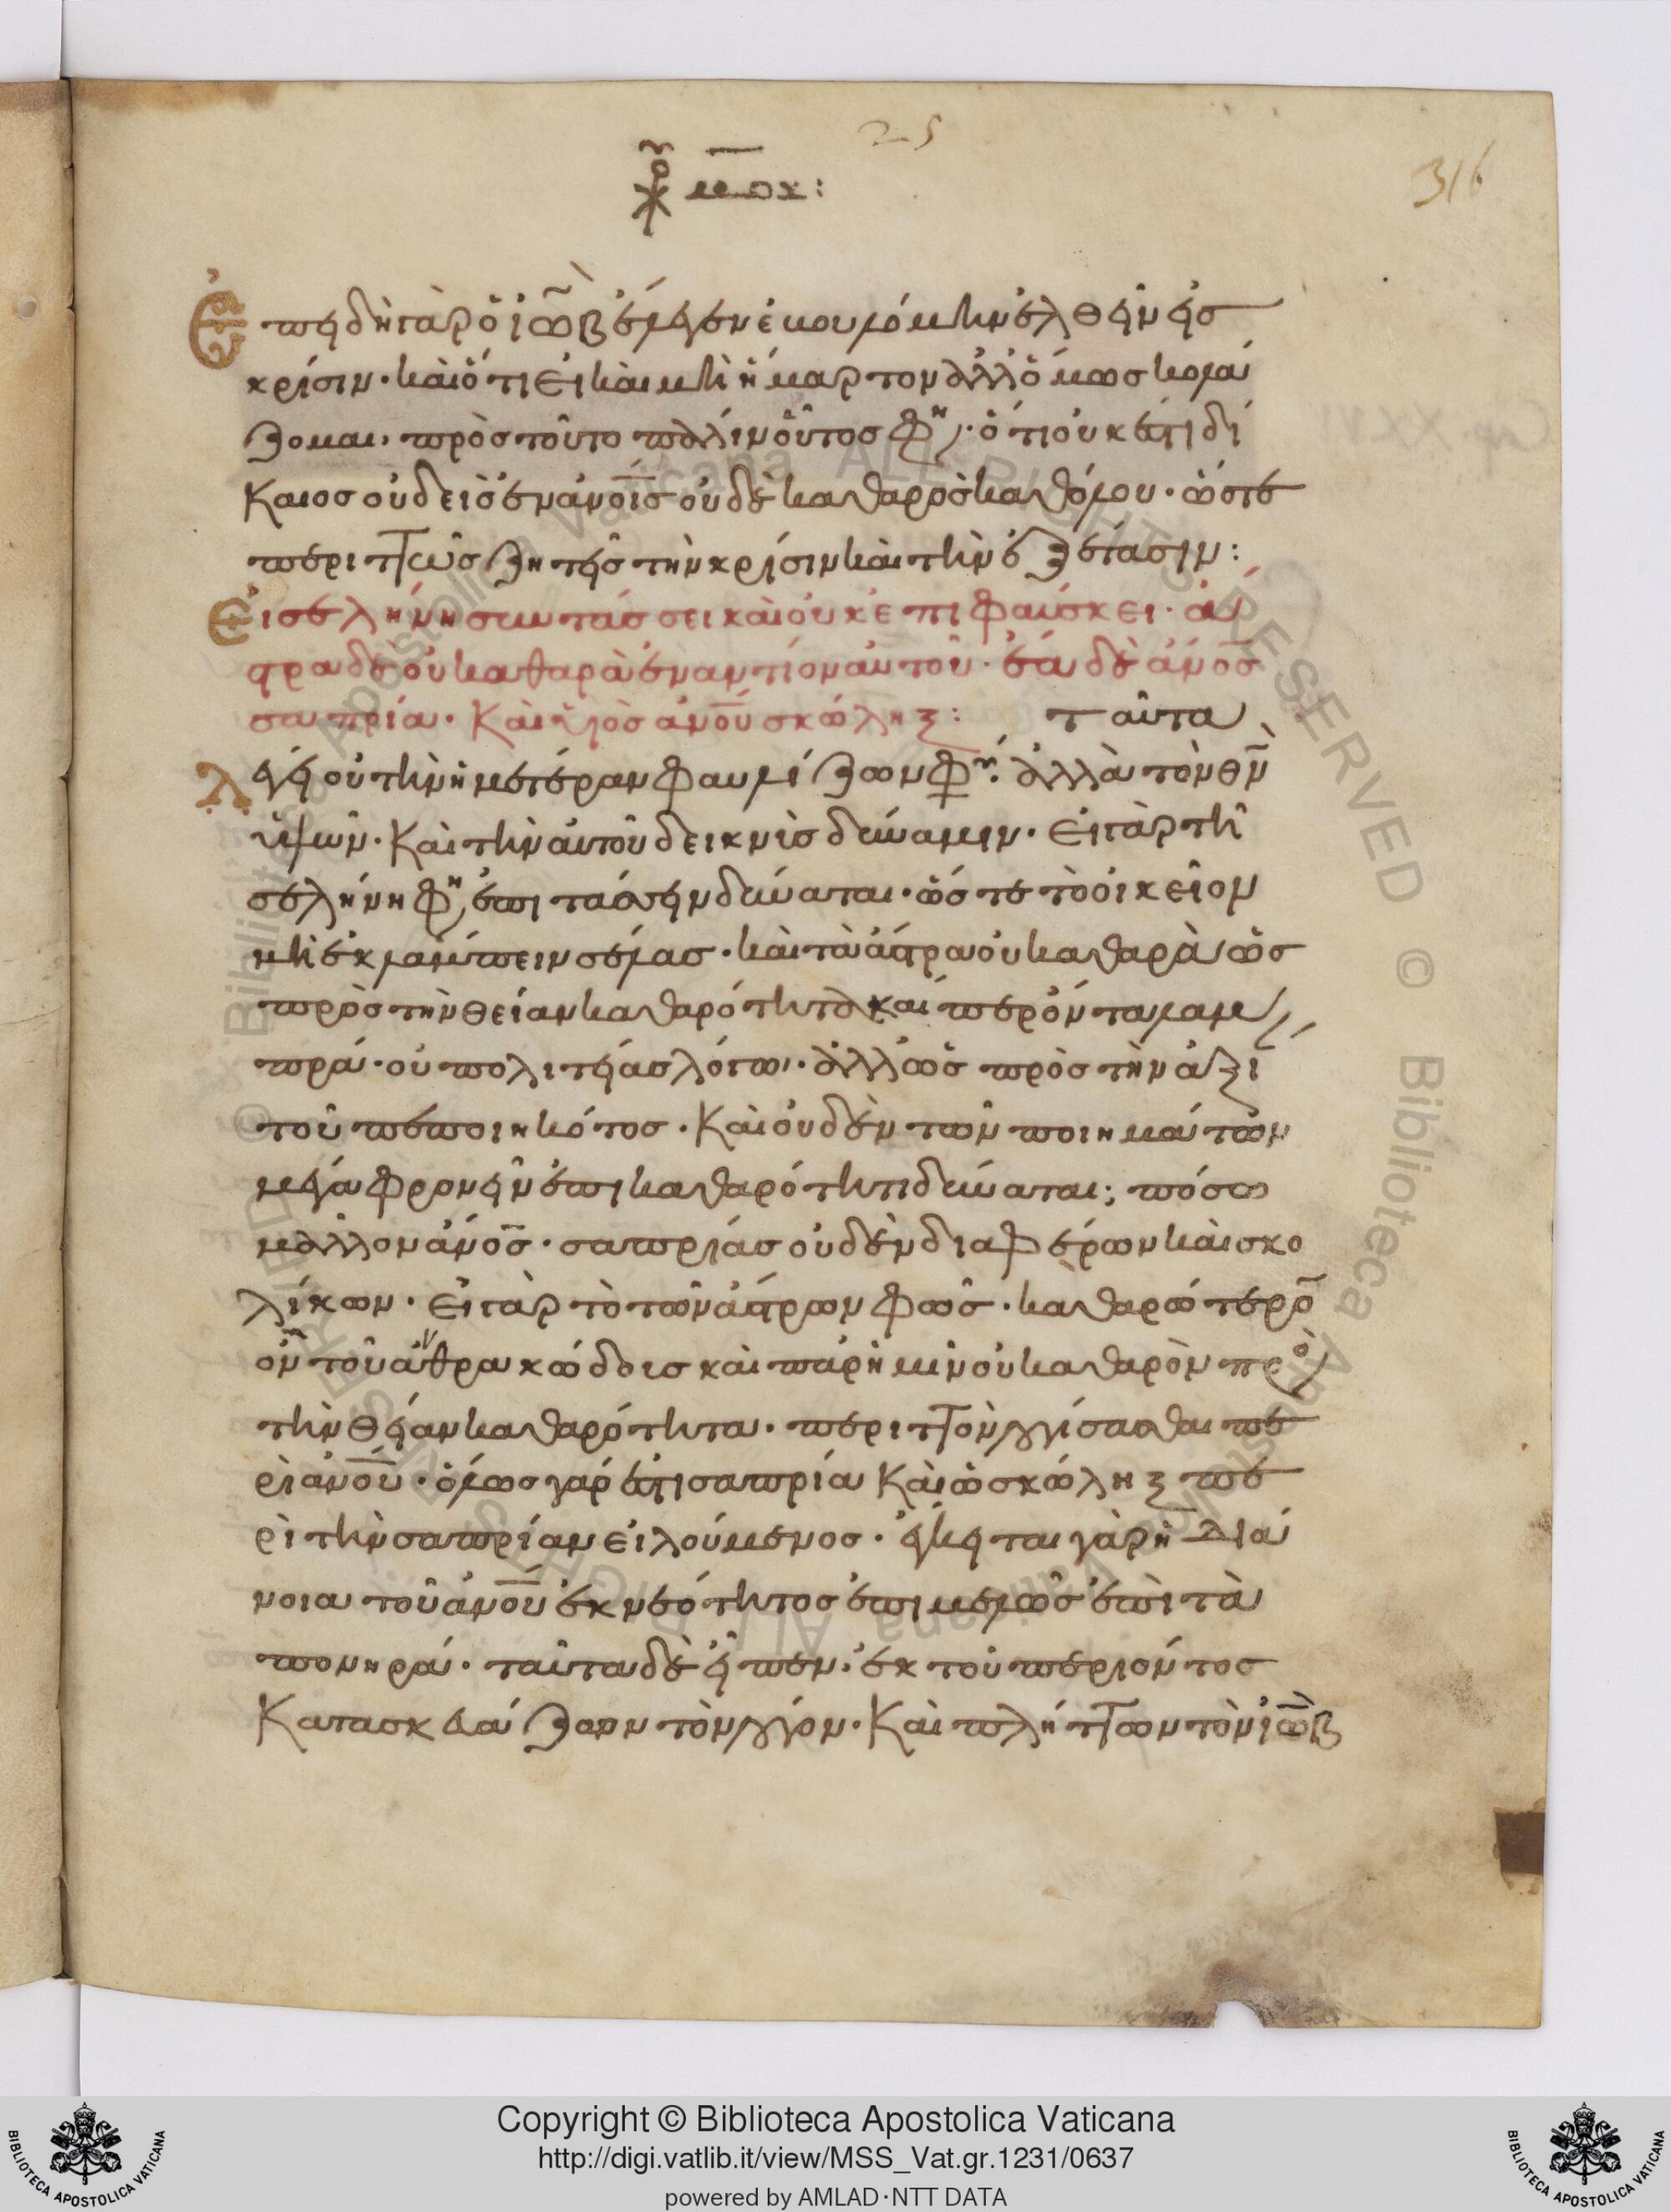 25
316
χρο μοχ:
Επειδὴ γὰρ ὁ ἰὼβ ἔλεγεν ἐβουλόμην ἐλθεῖν εἰς
κρίσιν· καὶ ὅτι εἰ καὶ μὴ ἥμαρτον ἀλλ' ὅμως κολά
ζομαι· πρὸς τοῦτο πάλιν οὗτος φη· ὅτι οὐκ ἔστι δί
καιος οὐδεὶς ἐν ἀνοις οὐδὲ καθαρὸς καθόλου· ὥστε
περιττῶς ζητεῖς τὴν κρίσιν καὶ τὴν ἐξέτασιν:
Εἰ σελήνη συντάσσει καὶ οὐκ ἐπιφαύσκει· ἄ
στρα δὲ οὐ καθαρὰ ἐναντίον αὐτοῦ· ἔα δὲ ἀνος
σαπρία· καὶ υἱὸς ἀνου σκώληξ: ταῦτα
λέγει οὐ τὴν ἡμετέραν φαυλίζων φύ· ἀλλὰ τὸν θν
ὑψῶν· καὶ τὴν αὐτοῦ δεικνὺς δύναμιν· εἰ γὰρ τῆ
σελήνη φη ἐπιτάσσειν δύναται· ὥστε τὸ οἰκεῖον
μὴ ἐκλάμπειν σέλας· καὶ τὰ ἄστρα οὐ καθαρὰ ὡς
πρὸς τὴν θείαν καθαρότητα καίπερ ὄντα λαμ
πρά· οὐ πολιτείας λόγω· ἀλλ' ὡς πρὸς τὴν ἀξί
τοῦ πεποιηκότος· καὶ οὐδὲν τῶν ποιημάτων
μέγα φρονεῖν ἐπὶ καθαρότητι δύναται; πόσω
μᾶλλον ἀνος· σαπρίας οὐδὲν διαφέρων καὶ σκο
λίκων· εἰ γὰρ τὸ τῶν ἄστρων φῶς· καθαρώτερο
ὂν τοῦ ἀνθρακώδους καὶ παρ' ἡμῖν οὐ καθαρὸν προ
τὴν θείαν καθαρότητα· περιττὸν λογίσασθαι πε
ρὶ ἀνου· ὅλως γάρ ἐστι σαπρία καὶ ὡς σκώληξ πε
ρὶ τὴν σαπρίαν εἰλούμενος· ἔγκειται γὰρ ἡ διά
νοια τοῦ ἀνου ἐκ νεότητος ἐπιμελῶς ἐπὶ τὰ
πονηρά· ταῦτα δὲ εἶπεν· ἐκ τοῦ περιόντος
κατασκευάζων τὸν λόγον· καὶ πλήττων τὸν ἰὼβ
Copyright © Biblioteca Apostolica Vaticana
http://digi.vatlib.it/view/MSS_Vat.gr.1231/0637
powered by AMLAD·NTT DATA
BIBLIOTECA APOSTOLICA VATICANA
BIBLIOTECA APOSTOLICA VATICANA